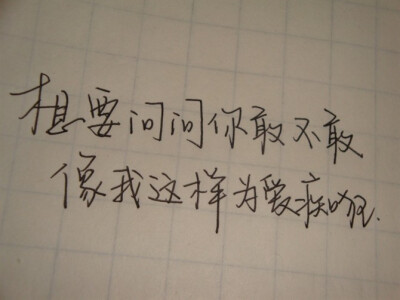 想要问问你敢不敢
像我这样为爱痴狂.